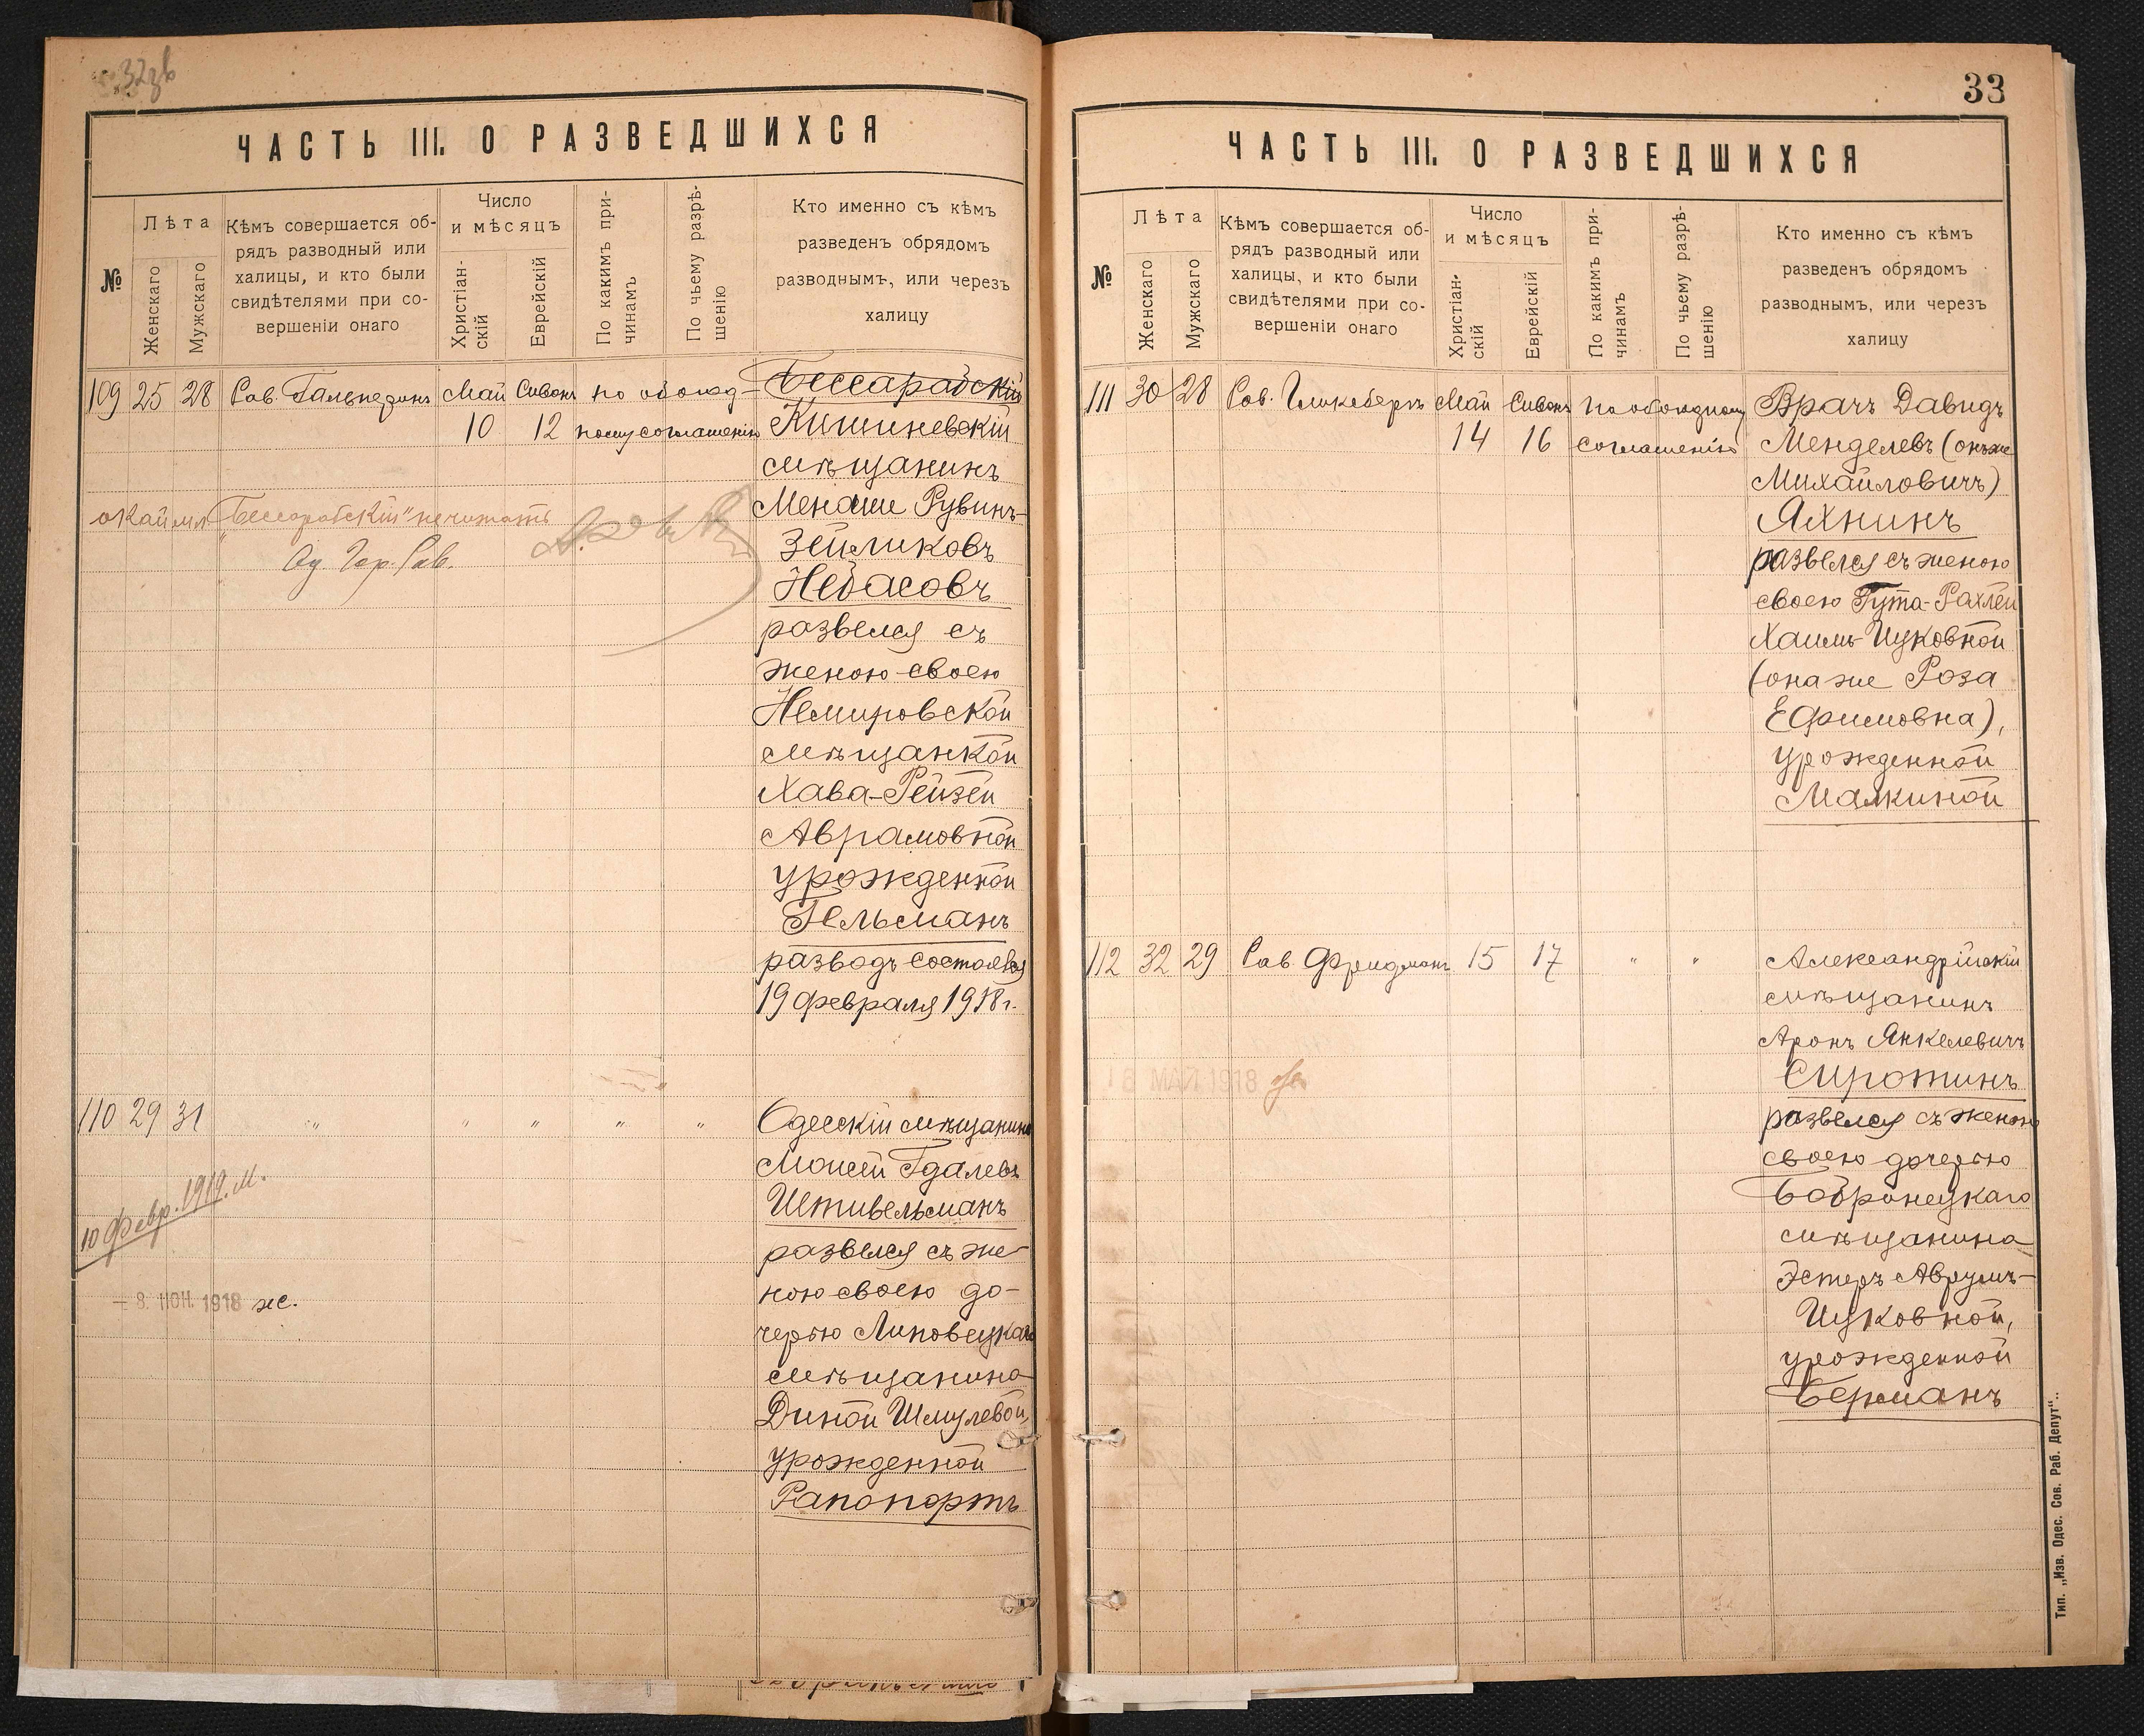 32зв
ЧАСТЬ III. О РАЗВЕДШИХСЯ
№
Лѣта
Женскаго
Мужскаго
Кѣмъ совершается об-
рядъ разводный или
халицы, и кто были
свидѣтелями при со-
вершеніи онаго
Число
и мѣсяцъ
Христіан-
скій
Еврейскій
По какимъ при-
чинамъ
По чьему разрѣ-
шенію
Кто именно съ кѣмъ
разведенъ обрядомъ
разводнымъ, или черезъ
халицу
109 25 28 Рав. Гальперинъ Май Сиванъ по обоюд-
10 12 ному соглашенію
Бессарабскій
Кишиневскій
мѣщанинъ
Менаше Рувинъ-
Зейликовъ
Небасовъ
развелся съ
женою своею
Немировской
мѣщанкой
Хава-Рейзей
Аврамовной
урожденной
Гельманъ
разводъ состоялся
19 февраля 1918 г.
„Бессарабскій" не читать
Од. Гор. Рав.
110 29 31 " " " " "
Одесскій мѣщанинъ
Моисей Гдалевъ
Штивельманъ
развелся съ же-
ною своею до-
черью Липовецкаго
мѣщанина
Диной Шмулевой,
урожденной
Рапопортъ
10 февр. 1919. М.
- 8. ІЮН. 1918 ж.
33
ЧАСТЬ III. О РАЗВЕДШИХСЯ
№
Лѣта
Женскаго
Мужскаго
Кѣмъ совершается об-
рядъ разводный или
халицы, и кто были
свидѣтелями при со-
вершеніи онаго
Число
и мѣсяцъ
Христіан-
скій
Еврейскій
По какимъ при-
чинамъ
По чьему разрѣ-
шенію
Кто именно съ кѣмъ
разведенъ обрядомъ
разводнымъ, или черезъ
халицу
111 30 28 Рав. Гликсбергъ Май Сиванъ по обоюдному
14 16 соглашенію
Врачъ Давидъ
Менделевъ (онъ же
Михайловичъ)
Яхнинъ
развелся съ женою
своею Гута-Рахлей
Хаимъ-Ицковной
(она же Роза
Ефимовна),
урожденной
Малкиной
112 32 29 Рав. Фридманъ 15 17 " "
Александрійскій
мѣщанинъ
Аронъ Янкелевичъ
Сиротинъ
развелся съ женою
своею дочерью
Бобринецкаго
мѣщанина
Эстеръ Аврумъ-
Ицковной,
урожденной
Берманъ
18 МАЙ 1918
Тип. „Изв. Одес. Сов. Раб. Депут".